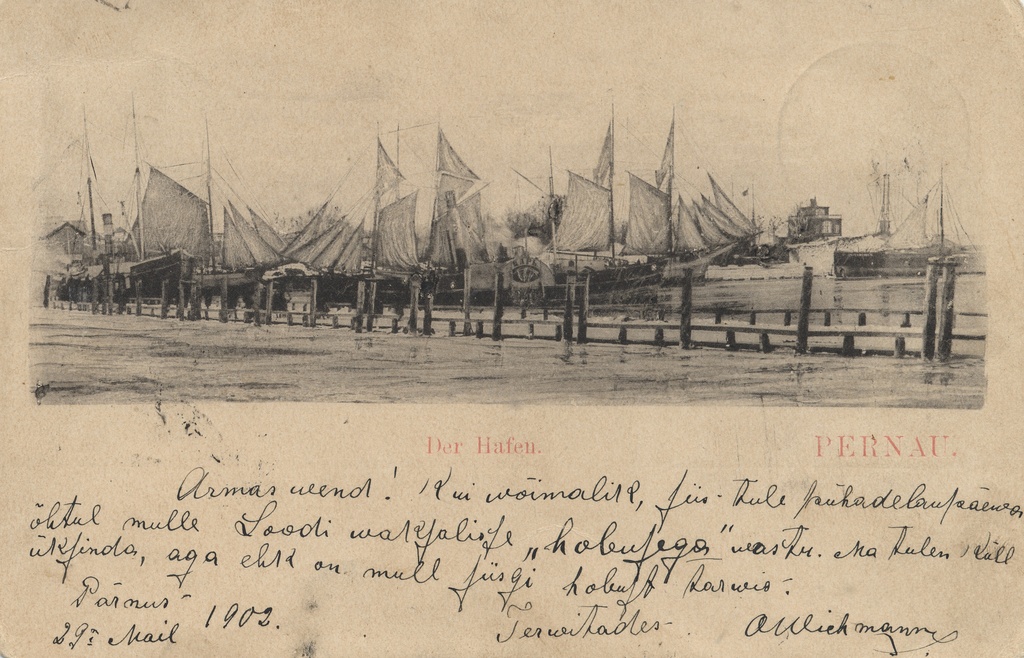 Der Hafen.
PERNAU.
Armas wend! Kui wõimalik, siis tule pühadelaupäewa
õhtul mulle Loodi waksalisse „hobusega” wastu. Ma tulen küll
üksinda, aga ehk on mull siisgi hobust tarwis.
Pärnus
29: Mail 1902.
Terwitades